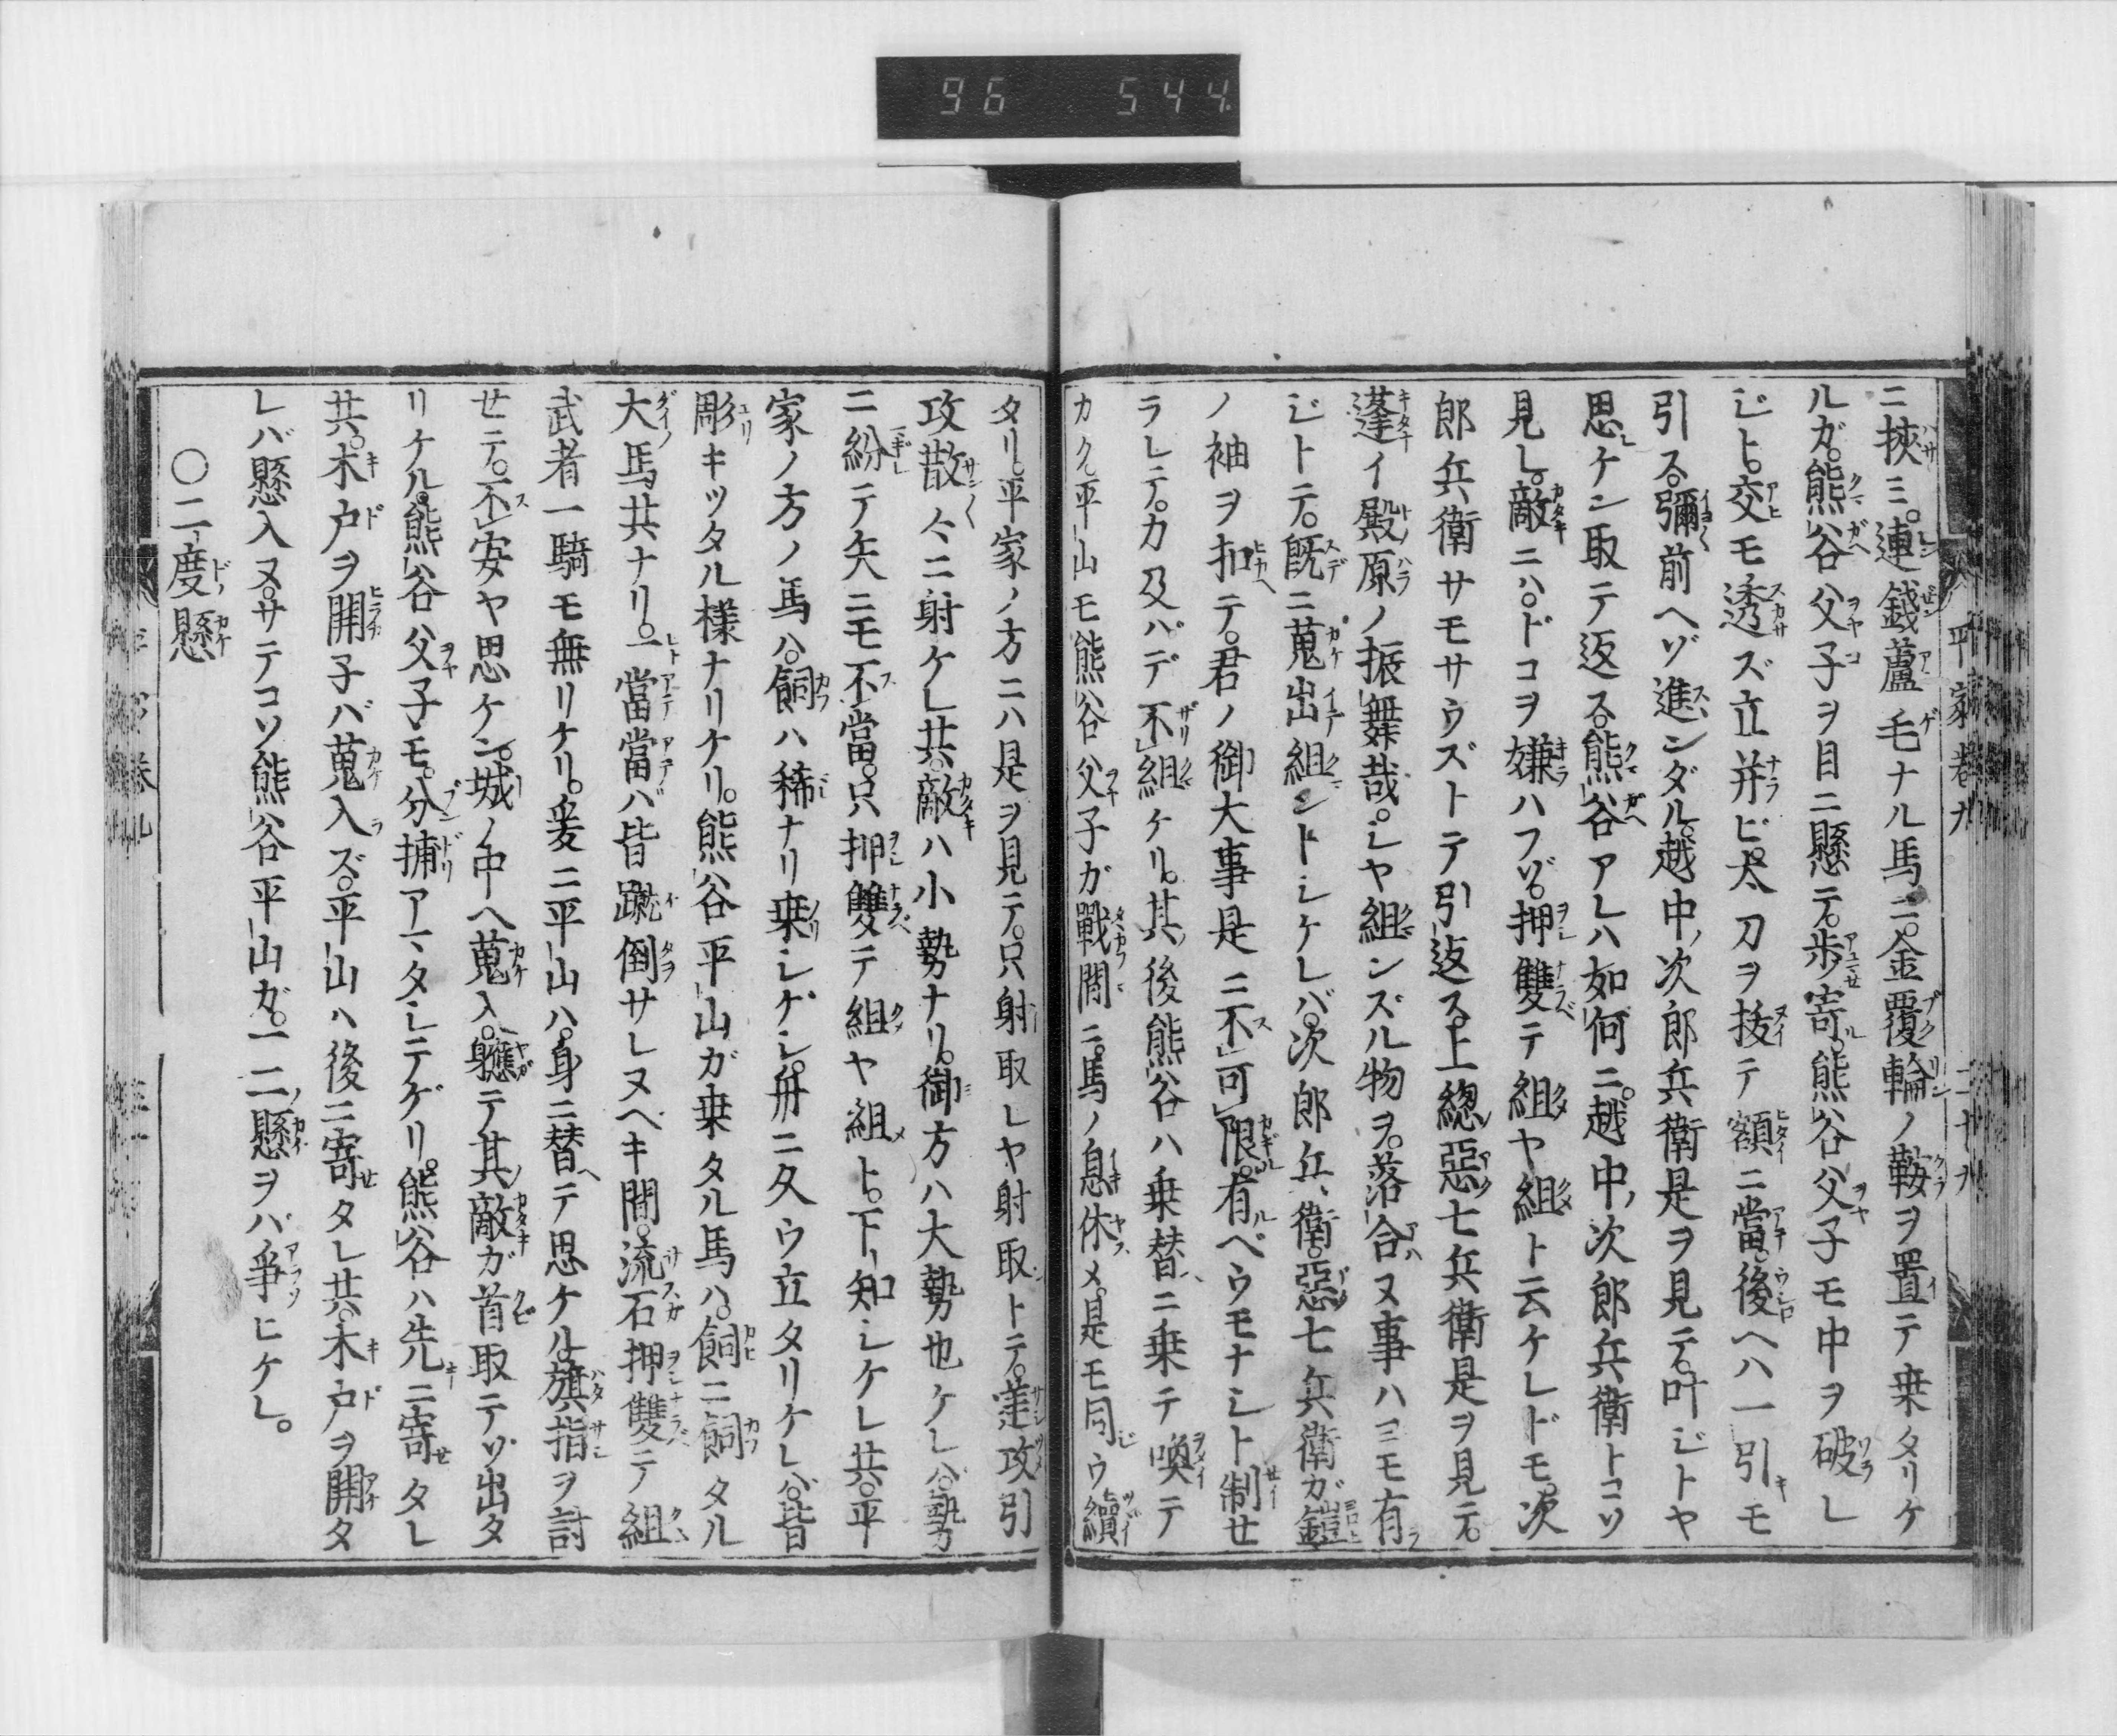 96 544
平家巻九 二十ヲ
ニ挾ミ。連錢蘆毛ナル馬ニ。金覆輪ノ鞍ヲ置テ乗タリケ
ルガ。熊谷父子ヲ目ニ懸テ。歩寄ル。熊谷父子モ中ヲ破レ
ジト。交モ透ズ立并ビ。太刀ヲ抜テ額ニ當。後ヘハ一引モ
引ズ。彌前ヘゾ進ンダル。越中ノ次郎兵衛是ヲ見テ。叶ジトヤ
思ケン取テ返ス。熊谷アレハ如何ニ。越中ノ次郎兵衛トコソ
見レ。敵ニハ。ドコヲ嫌ハフゾ。押雙テ組ヤ組ト云ケレドモ。次
郎兵衛サモサウズトテ引返ス。上總惡七兵衛是ヲ見テ。
蓬イ殿原ノ振舞哉。シヤ組ンズル物ヲ。落合ヌ事ハヨモ有
ジトテ。既ニ蒐出組ントシケレバ。次郎兵衛。惡七兵衛ガ鎧
ノ袖ヲ扣テ。君ノ御大事是ニ不可限。有ベウモナシト制せ
ラレテ。力及バデ不組ケリ。其後熊谷ハ乗替ニ乗テ喚テ
カク。平山モ熊谷父子ガ戰間ニ。馬ノ息休メ。是モ同ウ續イ
タリ。平家ノ方ニハ是ヲ見テ。只射取レヤ射取トテ。差攻引
攻散々ニ射ケレ共。敵ハ小勢ナリ。御方ハ大勢也ケレバ。勢
ニ紛テ矢ニモ不當。只押雙テ組ヤ組ト。下知シケレ共。平
家ノ方ノ馬ハ。飼ハ稀ナリ乗シケシ。舟ニ久ウ立タリケレバ。皆
彫キツタル様ナリケリ。熊谷平山ガ乗タル馬ハ。飼ニ飼タル
大馬共ナリ。一當當バ皆蹴倒サレヌベキ間。流石押雙テ組
武者一騎モ無リケリ。爰ニ平山ハ。身ニ替テ思ケル。旗指ヲ討
せテ。不安ヤ思ケン。城ノ中ヘ蒐入。軈テ其敵ガ首取テゾ出タ
リケル。熊谷父子モ。分捕アマタシテゲリ。熊谷ハ先ニ寄タレ
共。木戸ヲ開子バ蒐入ズ。平山ハ後ニ寄タレ共。木戸ヲ開タ
レバ懸入ヌ。サテコソ熊谷平山ガ。一二ノ懸ヲバ爭ヒケレ。
〇二度懸